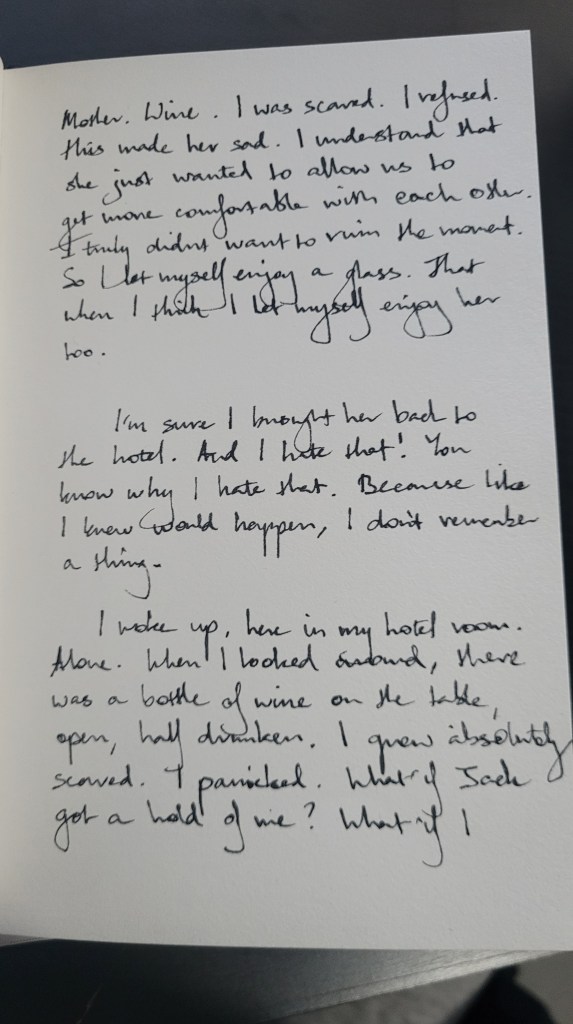 Mother. Wine. I was scared. I refused.
this made her sad. I understand that
she just wanted to allow us to
get more comfortable with each other.
I truly didnt want to ruin the moment.
So I let myself enjoy a glass. That
when I think I let myself enjoy her
too.
I'm sure I brought her back to
the hotel. And I hate that! You
know why I hate that. Because like
I knew would happen, I don't remember
a thing.
I woke up, here in my hotel room.
Alone. When I looked around, there
was a bottle of wine on the table,
open, half drunken. I grew absolutely
scared. I panicked. What if Jack
got a hold of me? What if I